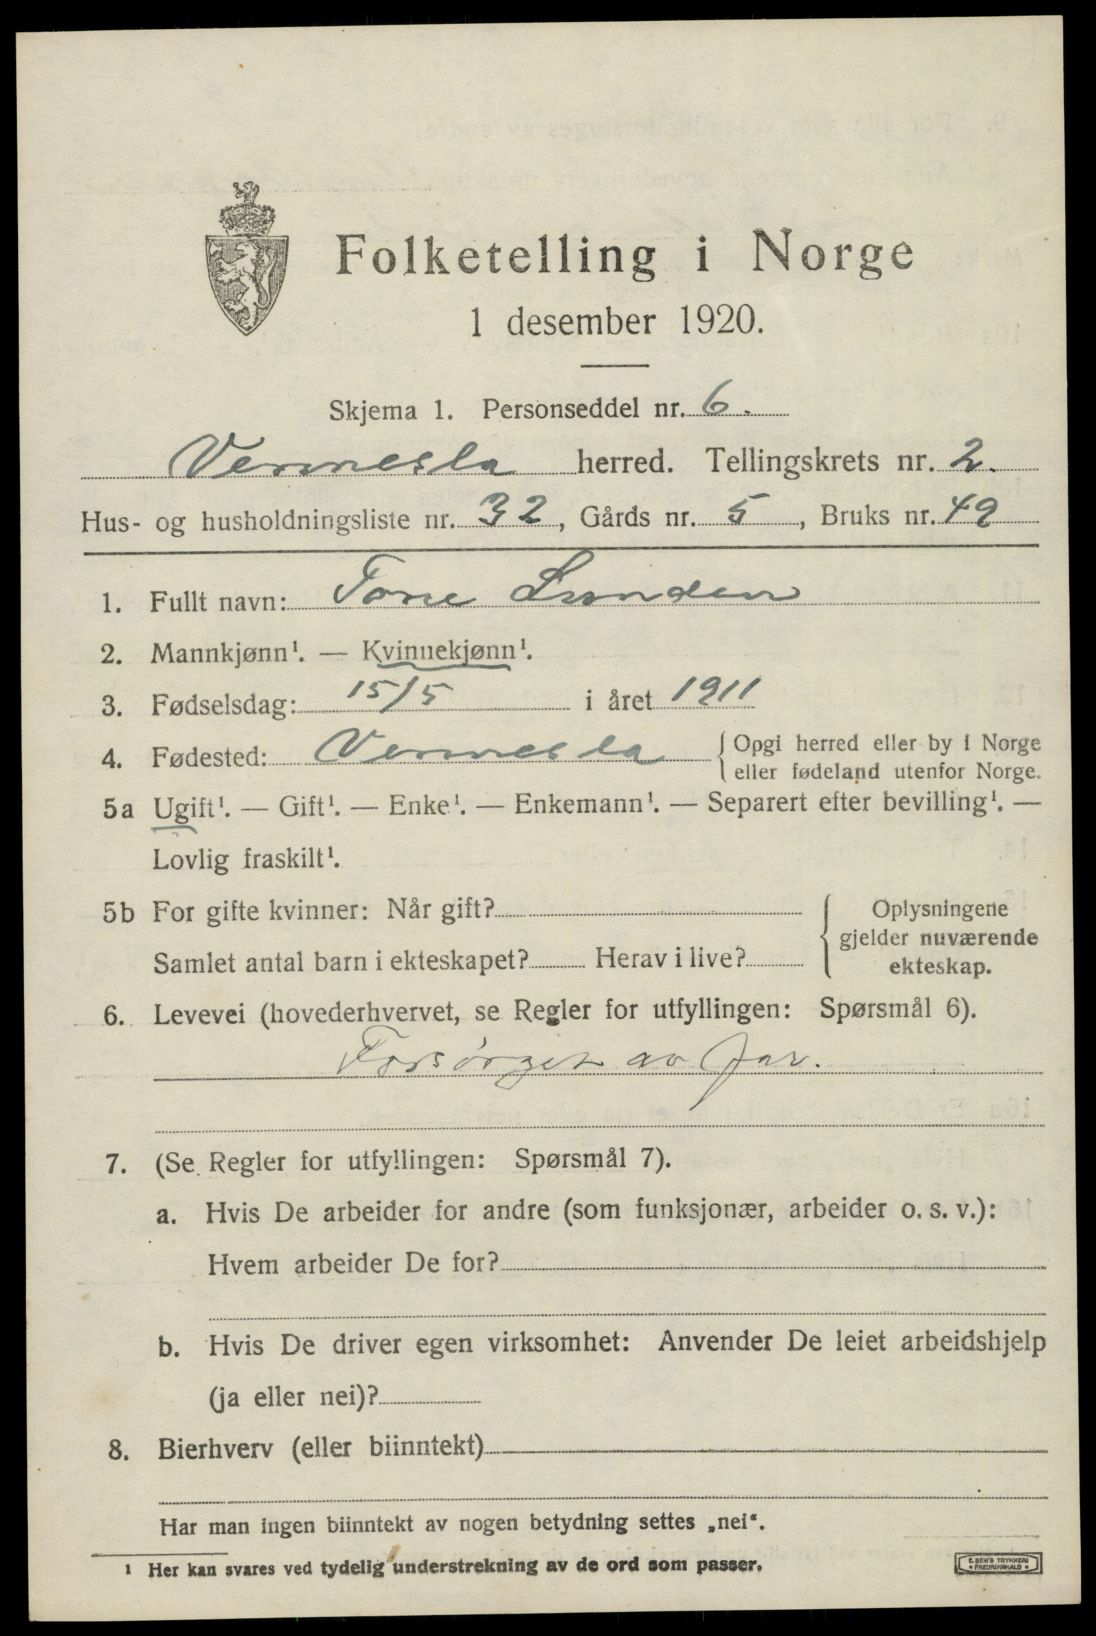 Folketelling i Norge
1 desember 1920.
Skjema 1. Personseddel nr. 6.
Vennesla herred. Tellingskrets nr. 2.
Hus- og husholdningsliste nr. 32, Gårds nr. 5, Bruks nr. 49
1. Fullt navn: Tone Lunden
2. Mannkjønn¹. — Kvinnekjønn¹.
3. Fødselsdag: 15/5 i året 1911
4. Fødested: Vennesla { Opgi herred eller by i Norge
eller fødeland utenfor Norge.
5a Ugift¹. — Gift¹. — Enke¹. — Enkemann¹. — Separert efter bevilling¹. —
Lovlig fraskilt¹.
5b For gifte kvinner: Når gift?
Samlet antal barn i ekteskapet? Herav i live?
{ Oplysningene
gjelder nuværende
ekteskap.
6. Levevei (hovederhvervet, se Regler for utfyllingen: Spørsmål 6).
Forsørget av far.
7. (Se Regler for utfyllingen: Spørsmål 7).
a. Hvis De arbeider for andre (som funksjonær, arbeider o. s. v.):
Hvem arbeider De for?
b. Hvis De driver egen virksomhet: Anvender De leiet arbeidshjelp
(ja eller nei)?
8. Bierhverv (eller biinntekt)
Har man ingen biinntekt av nogen betydning settes „nei“.
¹ Her kan svares ved tydelig understrekning av de ord som passer.
E. SEM'S TRYKKERI
• FREDRIKSHALD •